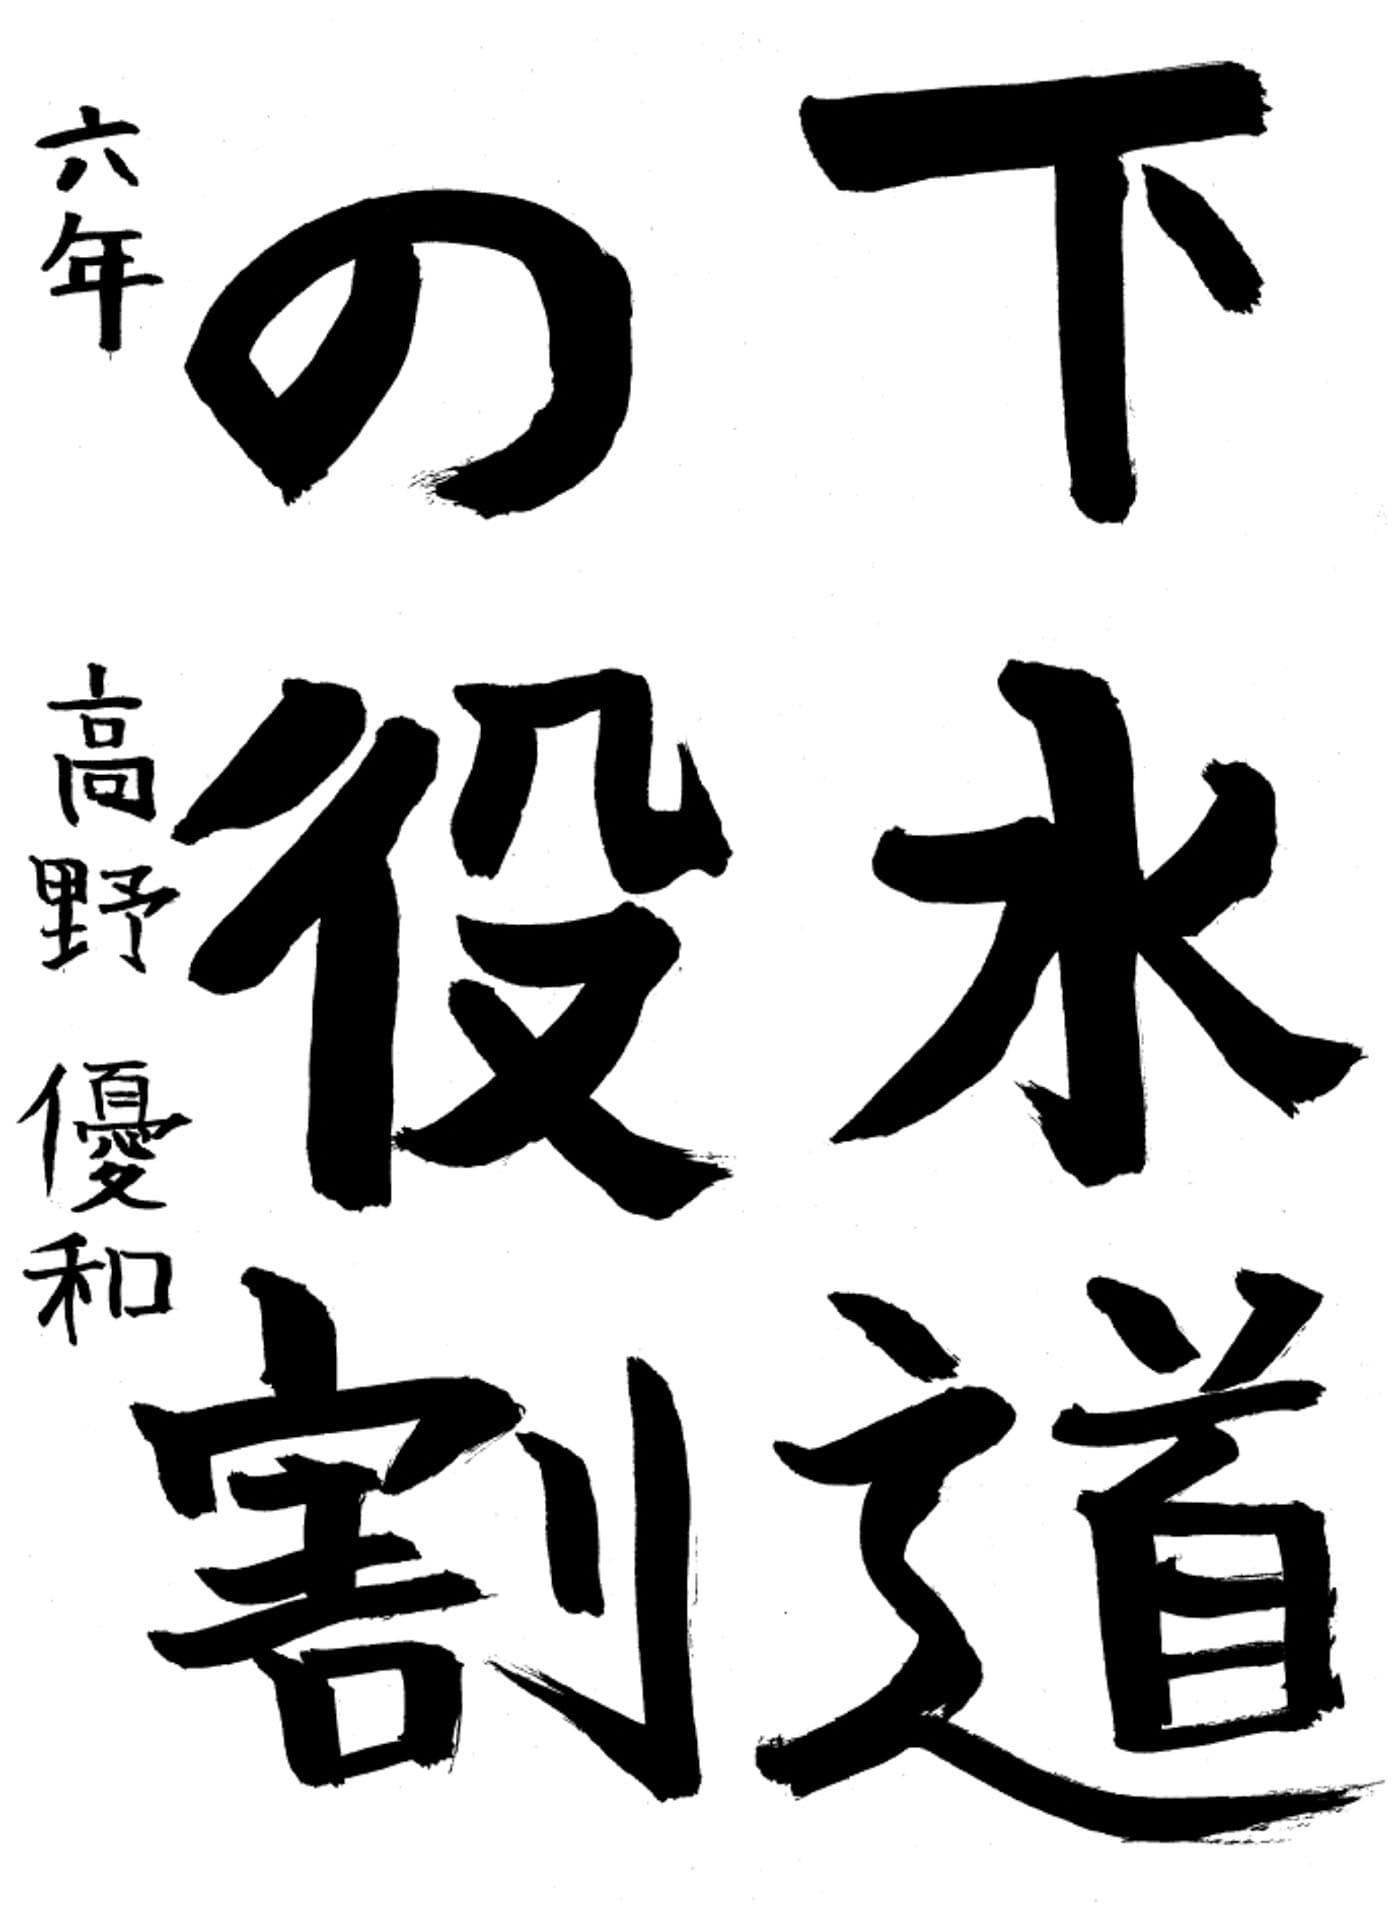 下水道
の役割
六年 高野 優和